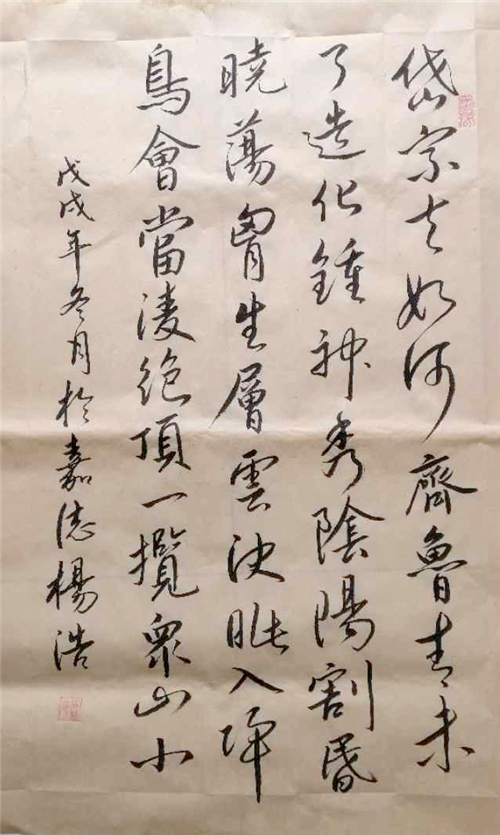 岱宗夫如何齊魯青未
了造化鍾神秀陰陽割昏
曉蕩胷生層雲決眦入歸
鳥會當淩絶頂一攬衆山小
戊戌年冬月於嘉德楊浩